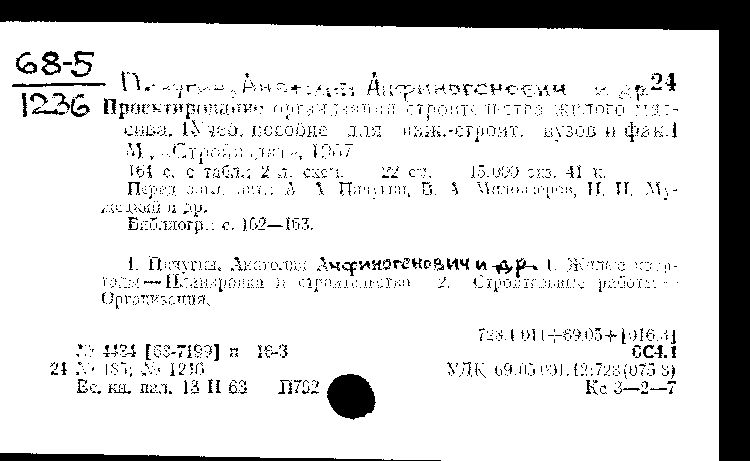 68-5
1236
Пичугин, Анатолий Анфиногенович и др. 24
Проектирование организации строительства жилого мас-
сива. [Учеб. пособие для инж.-строит. вузов и фак.]
М., «Стройиздат», 1967
164 с. с табл.; 2 л. схем. 22 см. 15.000 экз. 41 к.
Перед загл. авт.: А. А. Пичугин, В. А.
и др.
Библиогр.: с. 162—163.
1. Пичугин, Анатолий Анфиногенович и др. 1. Жилые квар-
талы — Планировка и строительство 2. Строительные работы —
Организация.
№ 4484 [68-7199] п 18-3
6С4.1
24 № 185; № 1246
УДК
Вс. кн. пал. 13 II 68 П762
Кс 3—2—7